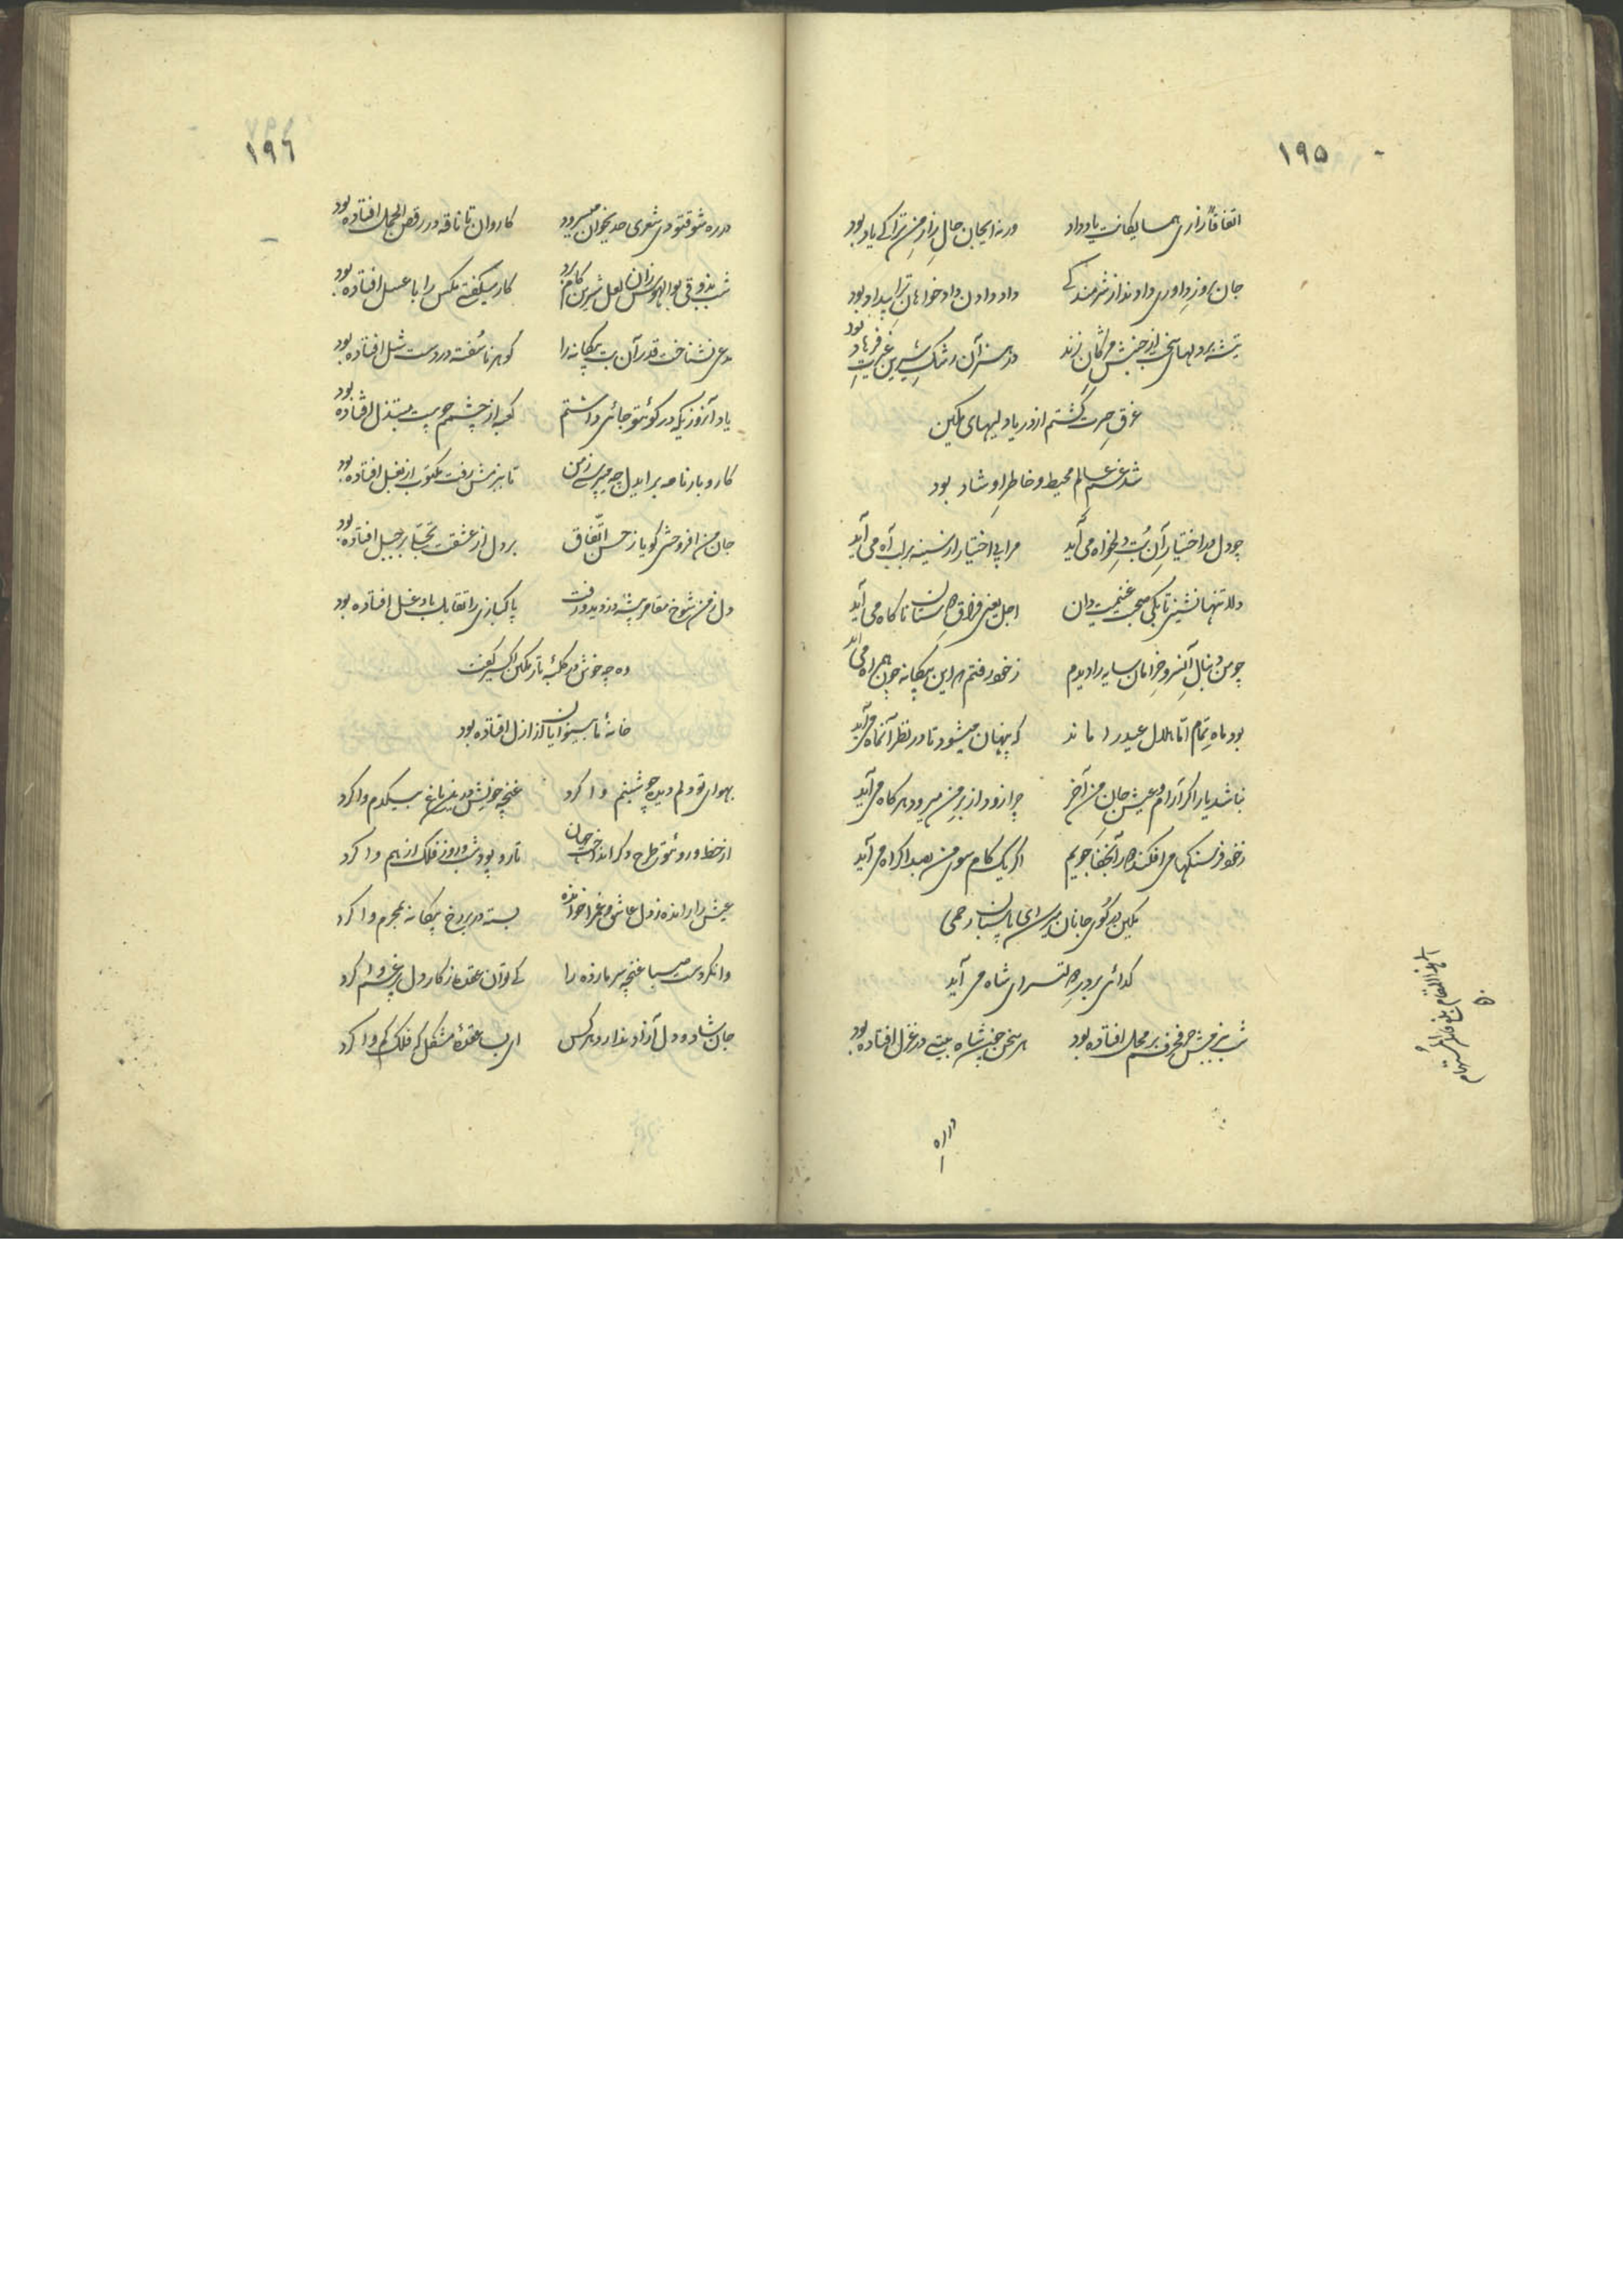 ۱۹۵
اتفاقاً زاری همسایگانت یاد داد ورنه ایجان حال زار من ترا کی یاد بود
جان بروز داوری دادند از شرمندگی داد دادن دادخواهان ترا بیداد بود
تیشه بر دلهای سخت از جنبش مژگان زند در هنر آن رشک شیرین غیرت فرهاد بود
غرق حیرت گشتم از دریا دلیهای مکین
شد غم عالم محیط و خاطر او شاد بود
چو دل در اختیار آن بت دلخواه می‌آید مرا بی اختیار از سینه بر لب آه می‌آید
دلا تنها نشین تا یکی صحبت غنیمت دان اجل یعنی فراق دوستان ناگاه می‌آید
چو من دنبال آنسرو خرامان سایه را دیدم ز خود رفتم که این بیگانه چون همراه می‌آید
بود ماه تمام اما هلال عید را ماند که پنهان میشود تا در نظر آنماه می‌آید
نباشد یار اگر آرام و عیش جان من آخر چرا زود از بر من میرود هرگاه می‌آید
ز خود فرسنگها می‌افکند آنجفاجویم اگر یک گام سوی من بصد اکراه می‌آید
مکین در کوی جانان میرسد ای پاسبان رحمی
گدائی بر در دولتسرای شاه می‌آید
شب ببزمش حرفم بر محل افتاده بود هر سخن جنب شاه بیتی در غزل افتاده بود
۱۹۶
در ره شوقتو دی شعری حدیخوان میسرود کاروان تا ناقه در رقص الجمل افتاده بود
شب بذوقی بوالهوس زان لعل شیرین کام زد کار میگفتی مگس را با عسل افتاده بود
مدعی نشناخت قدر آن بت بیگانه را گوهر ناسفته در دست شل افتاده بود
یاد آنروزیکه در کویتو جائی داشتم کعبه از چشمم چو بیت مبتذل افتاده بود
کار و بار نامه بر ایدل چه میپرسی ز من تا ببزمش رفت مکتوب از بغل افتاده بود
جان من افروختی گویا ز حسن اتفاق بر دل از عشقت تجلی بر جبل افتاده بود
دل ز من شوخ مقامر پیشه دزدید و رفت پاکبازی را تقابل با دغل افتاده بود
وه چه خوش در کلبه تار مکین آن کس گفت
خانه ما بینوایان از ازل افتاده بود
بهوای تو دلم دیده چو شبنم وا کرد غنچه خویش درین باغ بیکدم وا کرد
از خط و رو تو طرح دگر انداخت جهان تار و پود شب و روز فلک از هم وا کرد
عیش را رانده ز دل عاشق و غم را خوانده بسته در بر رخ بیگانه بمحرم وا کرد
وا نکردست صبا غنچه سرما زده را کی توان عقده ز کار دل پر غم وا کرد
جان شاد و دل آزاد ندارد هر کس ای بسا عقده مشکل که فلک کم وا کرد